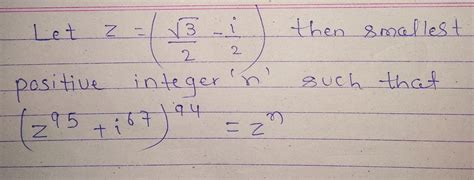 Let z = (√3/2 - i/2) then smallest
positive integer 'n' such that
(z^95 + i^67)^94 = z^n